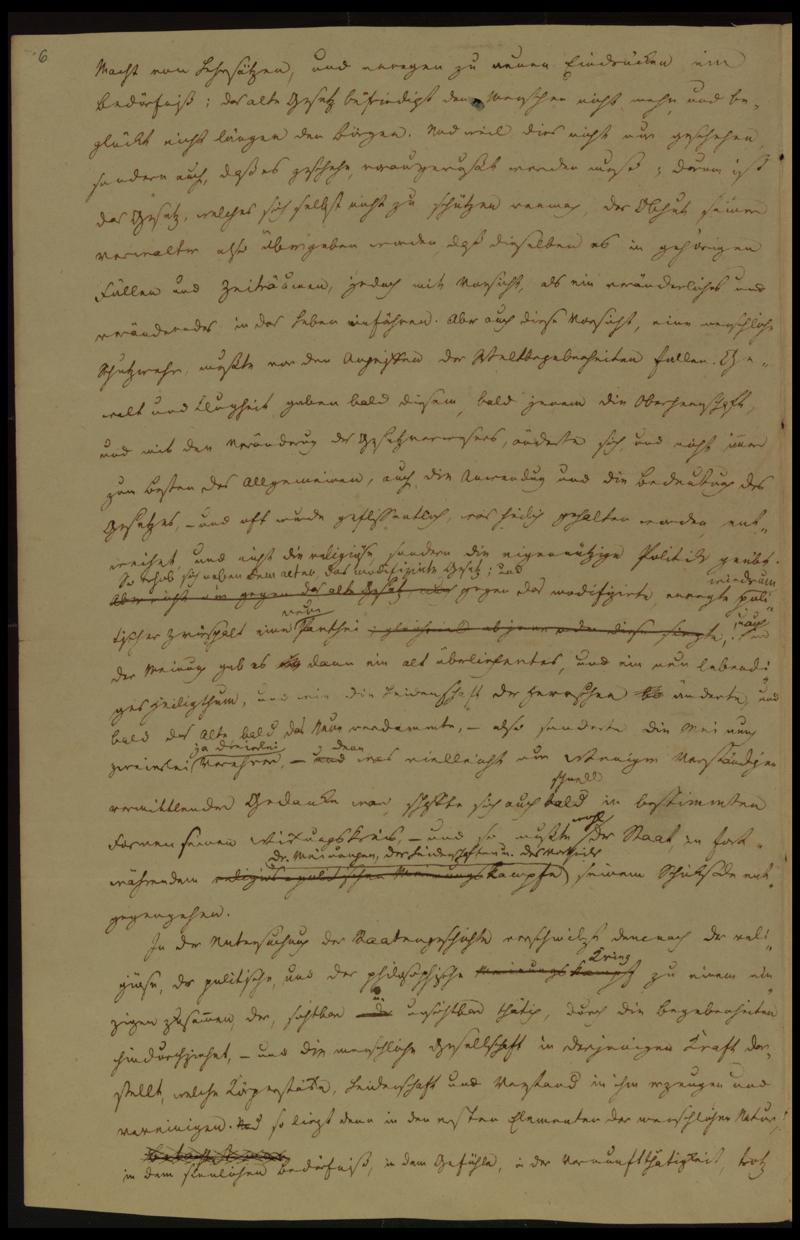 6
Macht von Lehrsätzen, und erregen zu neuen Eindrücken ein
Bedürfniß; das alte Gesetz befriedigt den Menschen nicht mehr und be-
glückt nicht länger den Bürger. Und weil dies nicht nur geschehen,
sondern auch, daß es geschehe, vorausgesetzt werden muß; darum ist
das Gesetz, welches sich selbst nicht zu schützen vermag, der Obhut seiner
Verwalter also übergeben worden, daß dieselben es in gehörigen
Fällen und Zeiträumen, jedoch mit Vorsicht, als ein veränderliches und
veränderndes in das Leben einführen. Aber auch diese Vorsicht, eine menschliche
Schutzwehr, mußte vor den Angriffen der Weltbegebenheiten fallen. Ge-
walt und Klugheit gaben bald diesem, bald jenem die Oberherrschaft,
und mit der Veränderung des Gesetzverwesers, änderte sich, und nicht immer
zum besten des Allgemeinen, auch die Anwendung und die Bedeutung des
Gesetzes, – und oft wurde geflissentlich, was heilig gehalten worden, ent-
weihet, und nicht die religiöse sondern die eigennützige Politik geübt.
So erhob sich neben dem alten das modifizirte Gesetz; und
gegen das modifizirte, erregte wiedrum poli-
tischer Zwiespalt eine neue Parthei
der Meinung gab es dann ein alt überliefertes, und ein neu lebendi-
ges Heiligthum, und wie die Leidenschaft der Herrscher änderte, und
bald das Alte bald das Neue verdammte, – also sonderte die Meinung
zweierlei ja dreierlei Verehrer, – denn was vielleicht nur weniger Verständigen
vermittlender Gedanke war, schaffte sich auch schnell in bestimmten
Formen seinen Wirkungskreis, – und so mußte wohl der Staat, in fort-
währendem der Meinungen, der Leidenschaften u. des Vortheils Kampfe seinem Schicksale ent-
gegengehen.
In der Untersuchung der Staatengeschichte verschmilzt demnach der reli-
giöse, der politische, und der philosophische Krieg zu einem ein-
zigen zusammen, der, sichtbar u unsichtbar thätig, durch die Begebenheiten
hindurchziehet, – und die menschliche Gesellschaft in derjenigen Kraft dar-
stellt, welche Körperstärke, Leidenschaft und Verstand in ihr erzeugen und
vereinigen. Und so liegt denn in den ersten Elementen der menschlichen Natur,
in dem sinnlichen Bedürfniß, in dem Gefühle, in der Vernunftthätigkeit, trotz